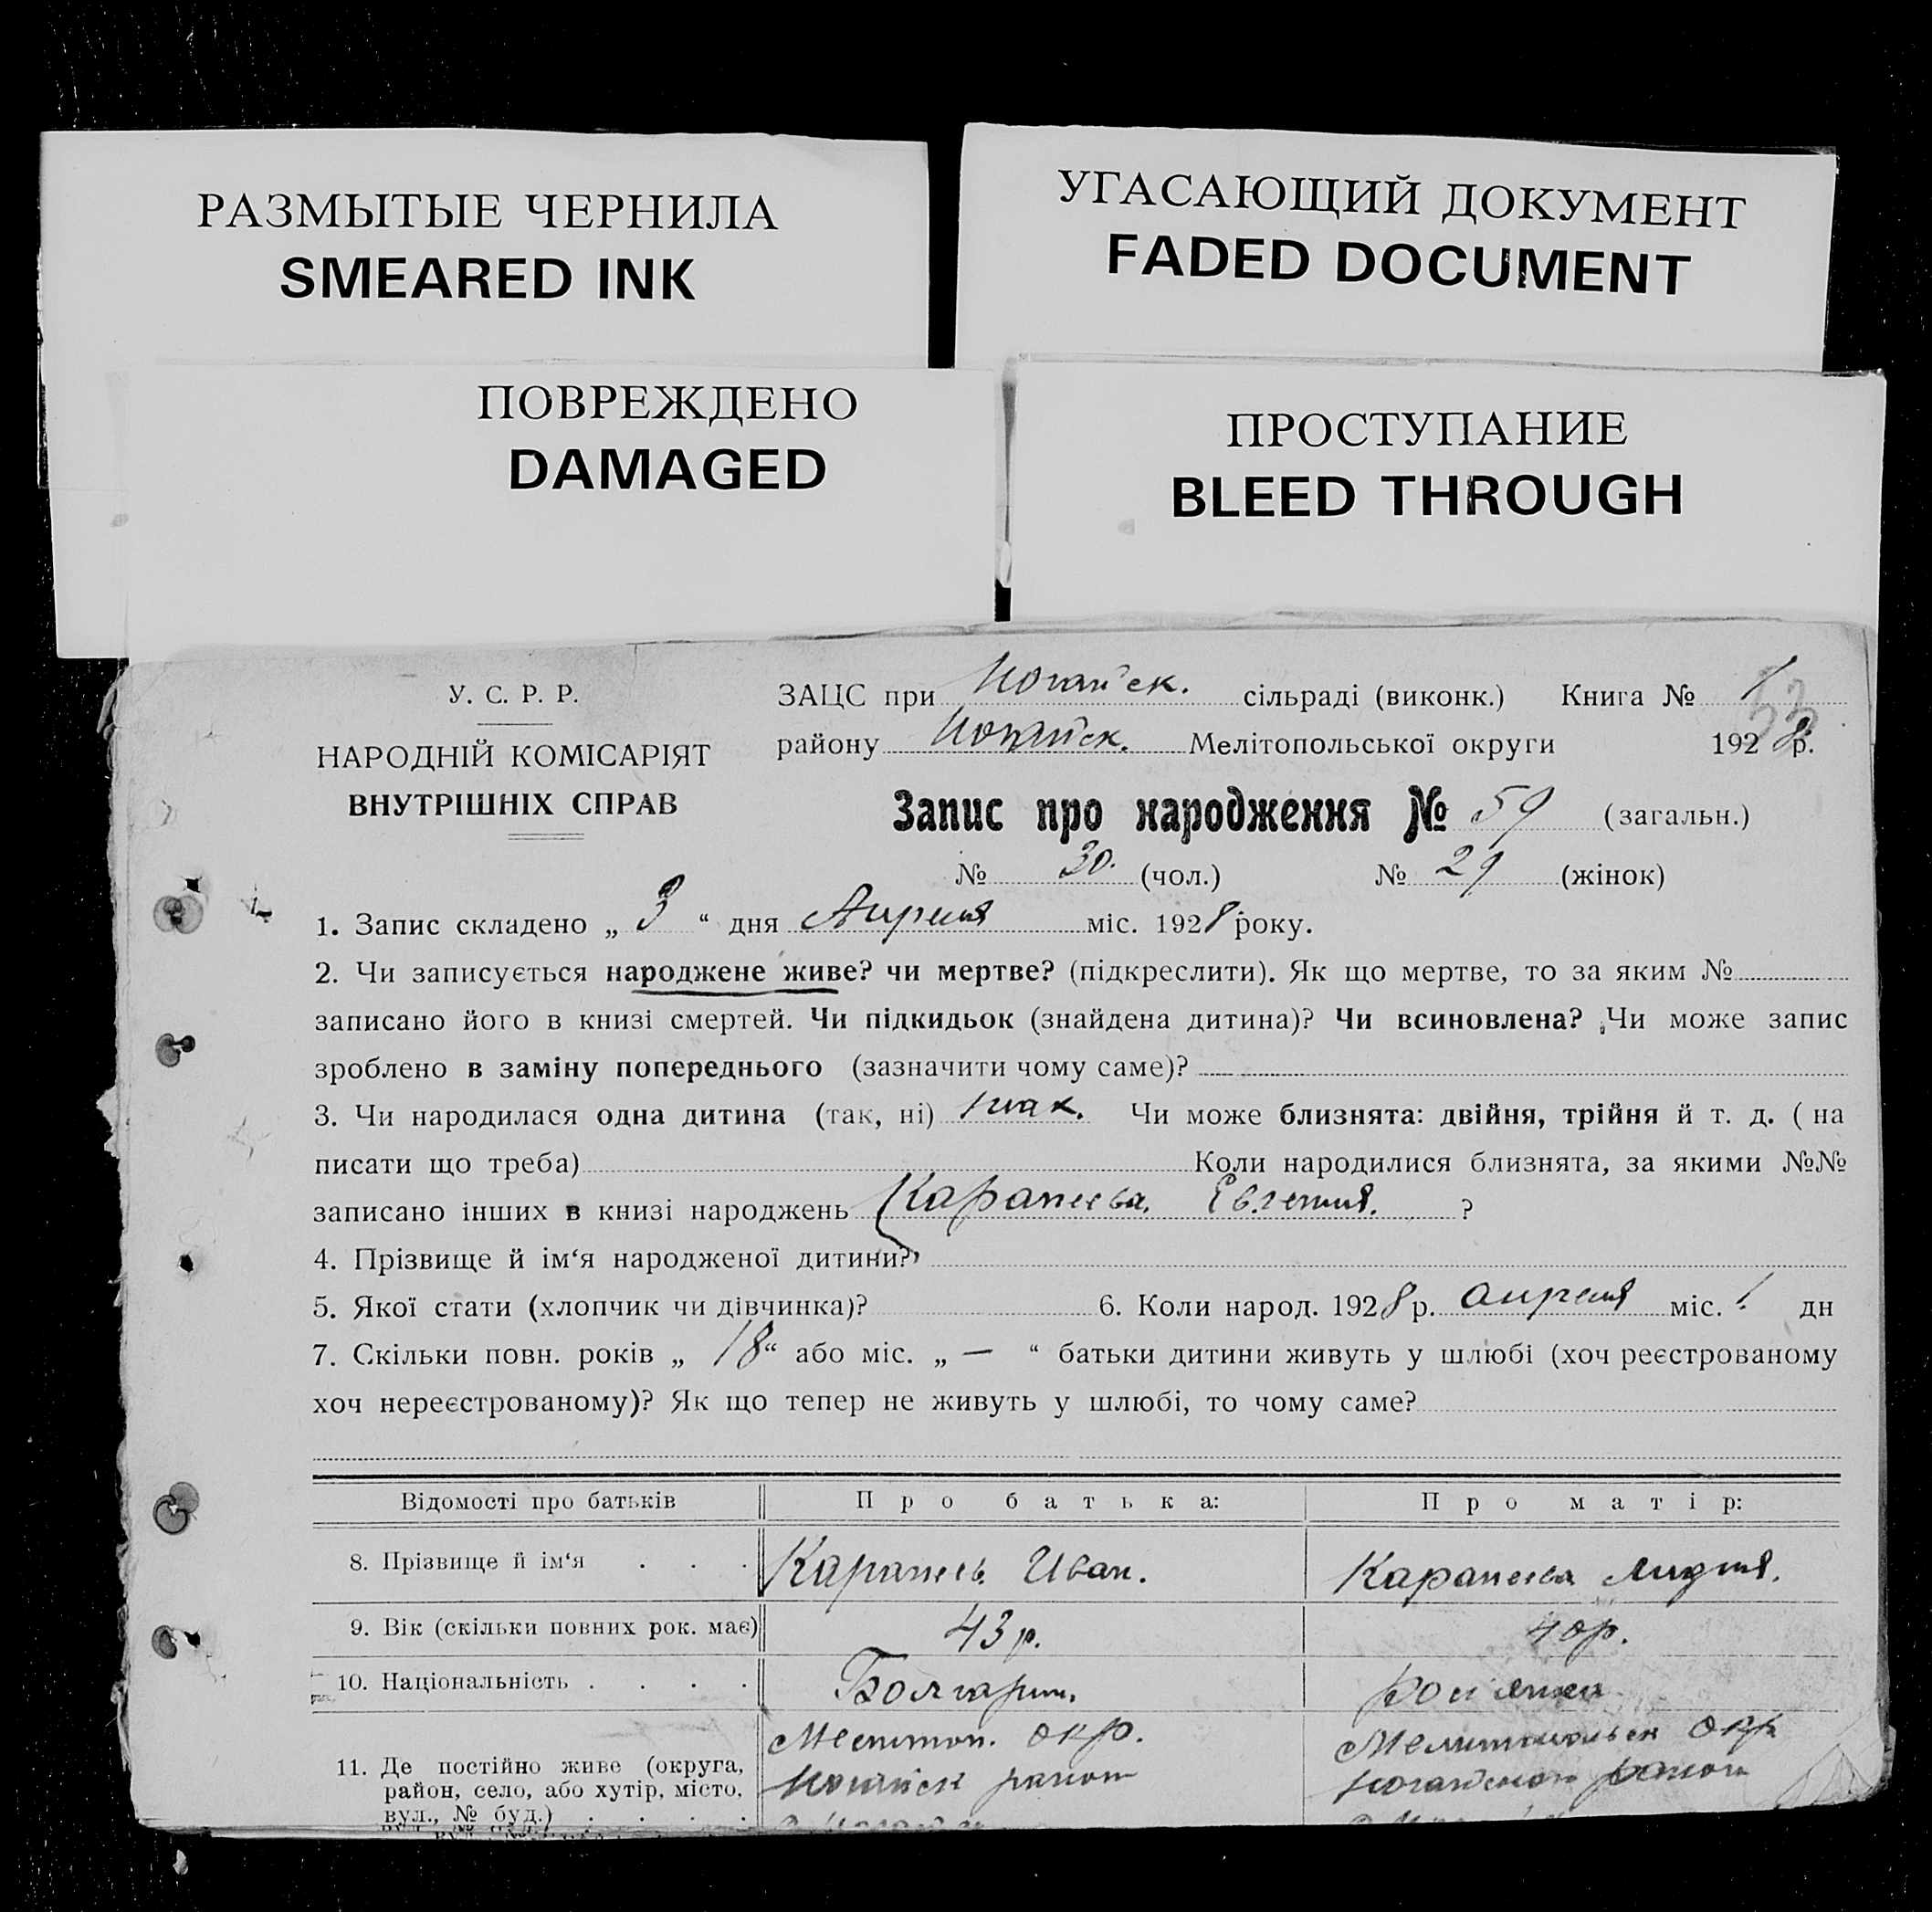 РАЗМЫТЫЕ ЧЕРНИЛА
SMEARED INK
УГАСАЮЩИЙ ДОКУМЕНТ
FADED DOCUMENT
ПОВРЕЖДЕНО
DAMAGED
ПРОСТУПАНИЕ
BLEED THROUGH
У. С. Р. Р.
НАРОДНІЙ КОМІСАРІЯТ
ВНУТРІШНІХ СПРАВ
ЗАЦС при Ногайск. сільраді (виконк.) Книга № 1
33
району Ногайск. Мелітопольської округи 1928 р.
Запис про народження № 59 (загальн.)
№ 30. (чол.) № 29 (жінок)
1. Запис складено „ 3 “ дня Апреля міс. 1928 року.
2. Чи записується народжене живе? чи мертве? (підкреслити). Як що мертве, то за яким №
записано його в книзі смертей. Чи підкидьок (знайдена дитина)? Чи всиновлена? Чи може запис
зроблено в заміну попереднього (зазначити чому саме)?
3. Чи народилася одна дитина (так, ні) так. Чи може близнята: двійня, трійня й т. д. ( на
писати що треба) Коли народилися близнята, за якими №№
записано інших в книзі народжень Карапеева. Евгения. ?
4. Прізвище й ім‘я народженої дитини?
5. Якої стати (хлопчик чи дівчинка)? 6. Коли народ. 1928 р. апреля міс. 1. дн
7. Скільки повн. років „ 18 “ або міс. „ — “ батьки дитини живуть у шлюбі (хоч реєстрованому
хоч нереєстрованому)? Як що тепер не живуть у шлюбі, то чому саме?
Відомості про батьків Про батька: Про матір:
8. Прізвище й ім‘я . . . Карапеев. Иван. Карапеева Лидия.
9. Вік (скільки повних рок. має) 43 р. 40 р.
10. Національність . . . . Болгарин. росіянка
11. Де постійно живе (округа,
район, село, або хутір, місто,
вул., № буд.) . . . .
Мелитоп. окр.
Ногайск район
Мелитопольск окр
Ногайского район